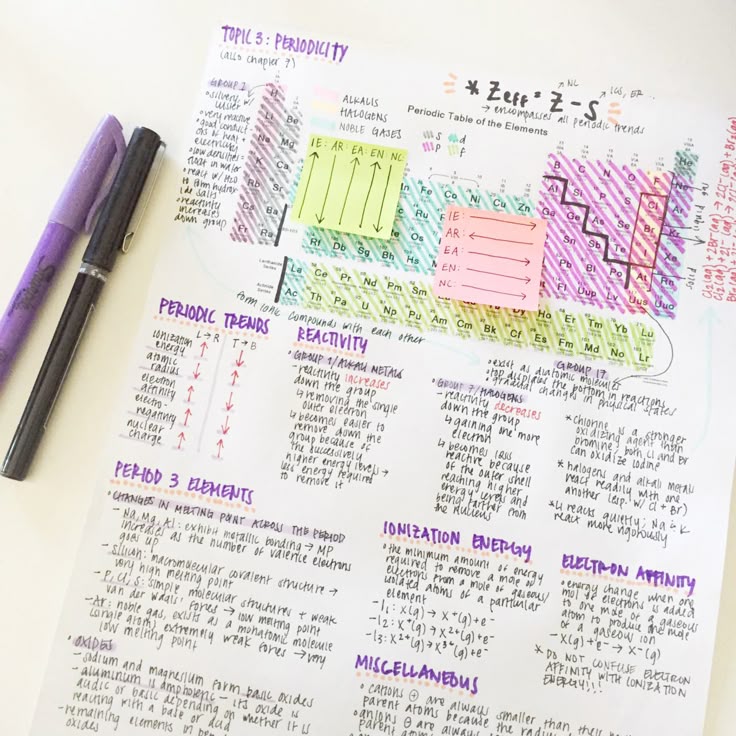 TOPIC 3: PERIODICITY
(also chapter 7)
GROUP 1
very reactive
good conduct
low densities
float in water
react w/ H₂O
to form hydro
reactivity
increases
down group
ALKALIS
HALOGENS
NOBLE GASES
* Zeff = Z - S
→ encompasses all periodic trends
Periodic Table of the Elements
s d
p f
IE: AR: EA: EN: NC
IE:
AR:
EA:
EN:
NC:
H
Li Be
Na Mg
K Ca
Rb Sr
Cs Ba
Fr Ra
Fe Co Ni Cu Zn
Rf Db Sg Bh Hs
B C N O He
Al Si P S Cl Ar
Ga Ge As Se Br Kr
In Sn Sb Te I Xe
Tl Pb Bi Po At Rn
Fl Uup Lv Uus Uuo
Lanthanide
Series
Actinide
Series
La Ce Pr Nd Pm Sm Ho Er Tm Yb Lu
Ac Th Pa U Np Pu Am Cm Bk Cf Es Fm Md No Lr
gas
liquid
solid
form ionic compounds with each other
PERIODIC TRENDS
L→R T→B
ionization
energy
atomic
radius
electron
affinity
electro-
negativity
nuclear
charge
REACTIVITY
GROUP 1/ALKALI METALS
- reactivity increases
down the group
↳ removing the single
outer electron
↳ becomes easier to
remove down the
group because of
the successively
higher energy levels →
less energy required
to remove it
GROUP 7/HALOGENS
- reactivity decreases
down the group
↳ gaining one more
electron
↳ becomes less
reactive because
of the outer shell
reaching higher
energy levels and
being farther from
the nucleus
GROUP 17
• exist as diatomic molecules
• top displaces the bottom in reactions
• gradual changes in physical states
* chlorine is a stronger
oxidizing agent than
bromine; both Cl and Br
can oxidize iodine
* halogens and alkali metals
react readily with one
another (esp. w/ Cl + Br)
* Li reacts quietly; Na + K
react more vigorously
PERIOD 3 ELEMENTS
• CHANGES IN MELTING POINT ACROSS THE PERIOD
- Na, Mg, Al: exhibit metallic bonding → MP
increases as the number of valence electrons
goes up
- silicon: macromolecular covalent structure →
very high melting point
- P, Cl, S: simple molecular structures + weak
van der Waals' forces → low melting point
- Ar: noble gas, exists as a monatomic molecule
(single atom) extremely weak forces → very
low melting point
• OXIDES
- sodium and magnesium form basic oxides
- aluminum is amphoteric - its oxide is
acidic or basic depending on whether it is
reacting with a base or acid
- remaining elements in
oxides
IONIZATION ENERGY
• the minimum amount of energy
required to remove a mole of
electrons from a mole of gaseous/
isolated atoms of a particular
element
- I₁: X(g) → X⁺(g) + e⁻
- I₂: X⁺(g) → X²⁺(g) + e⁻
- I₃: X²⁺(g) → X³⁺(g) + e⁻
ELECTRON AFFINITY
• energy change when one
mol of electrons is added
to one mole of a gaseous
atom to produce one mole
of a gaseous ion
- X(g) + e⁻ → X⁻(g)
* DO NOT CONFUSE ELECTRON
AFFINITY WITH IONIZATION
ENERGY!!!
MISCELLANEOUS
• cations ⊕ are always smaller than their
parent atoms because the radius
• anions ⊖ are always
parent atoms